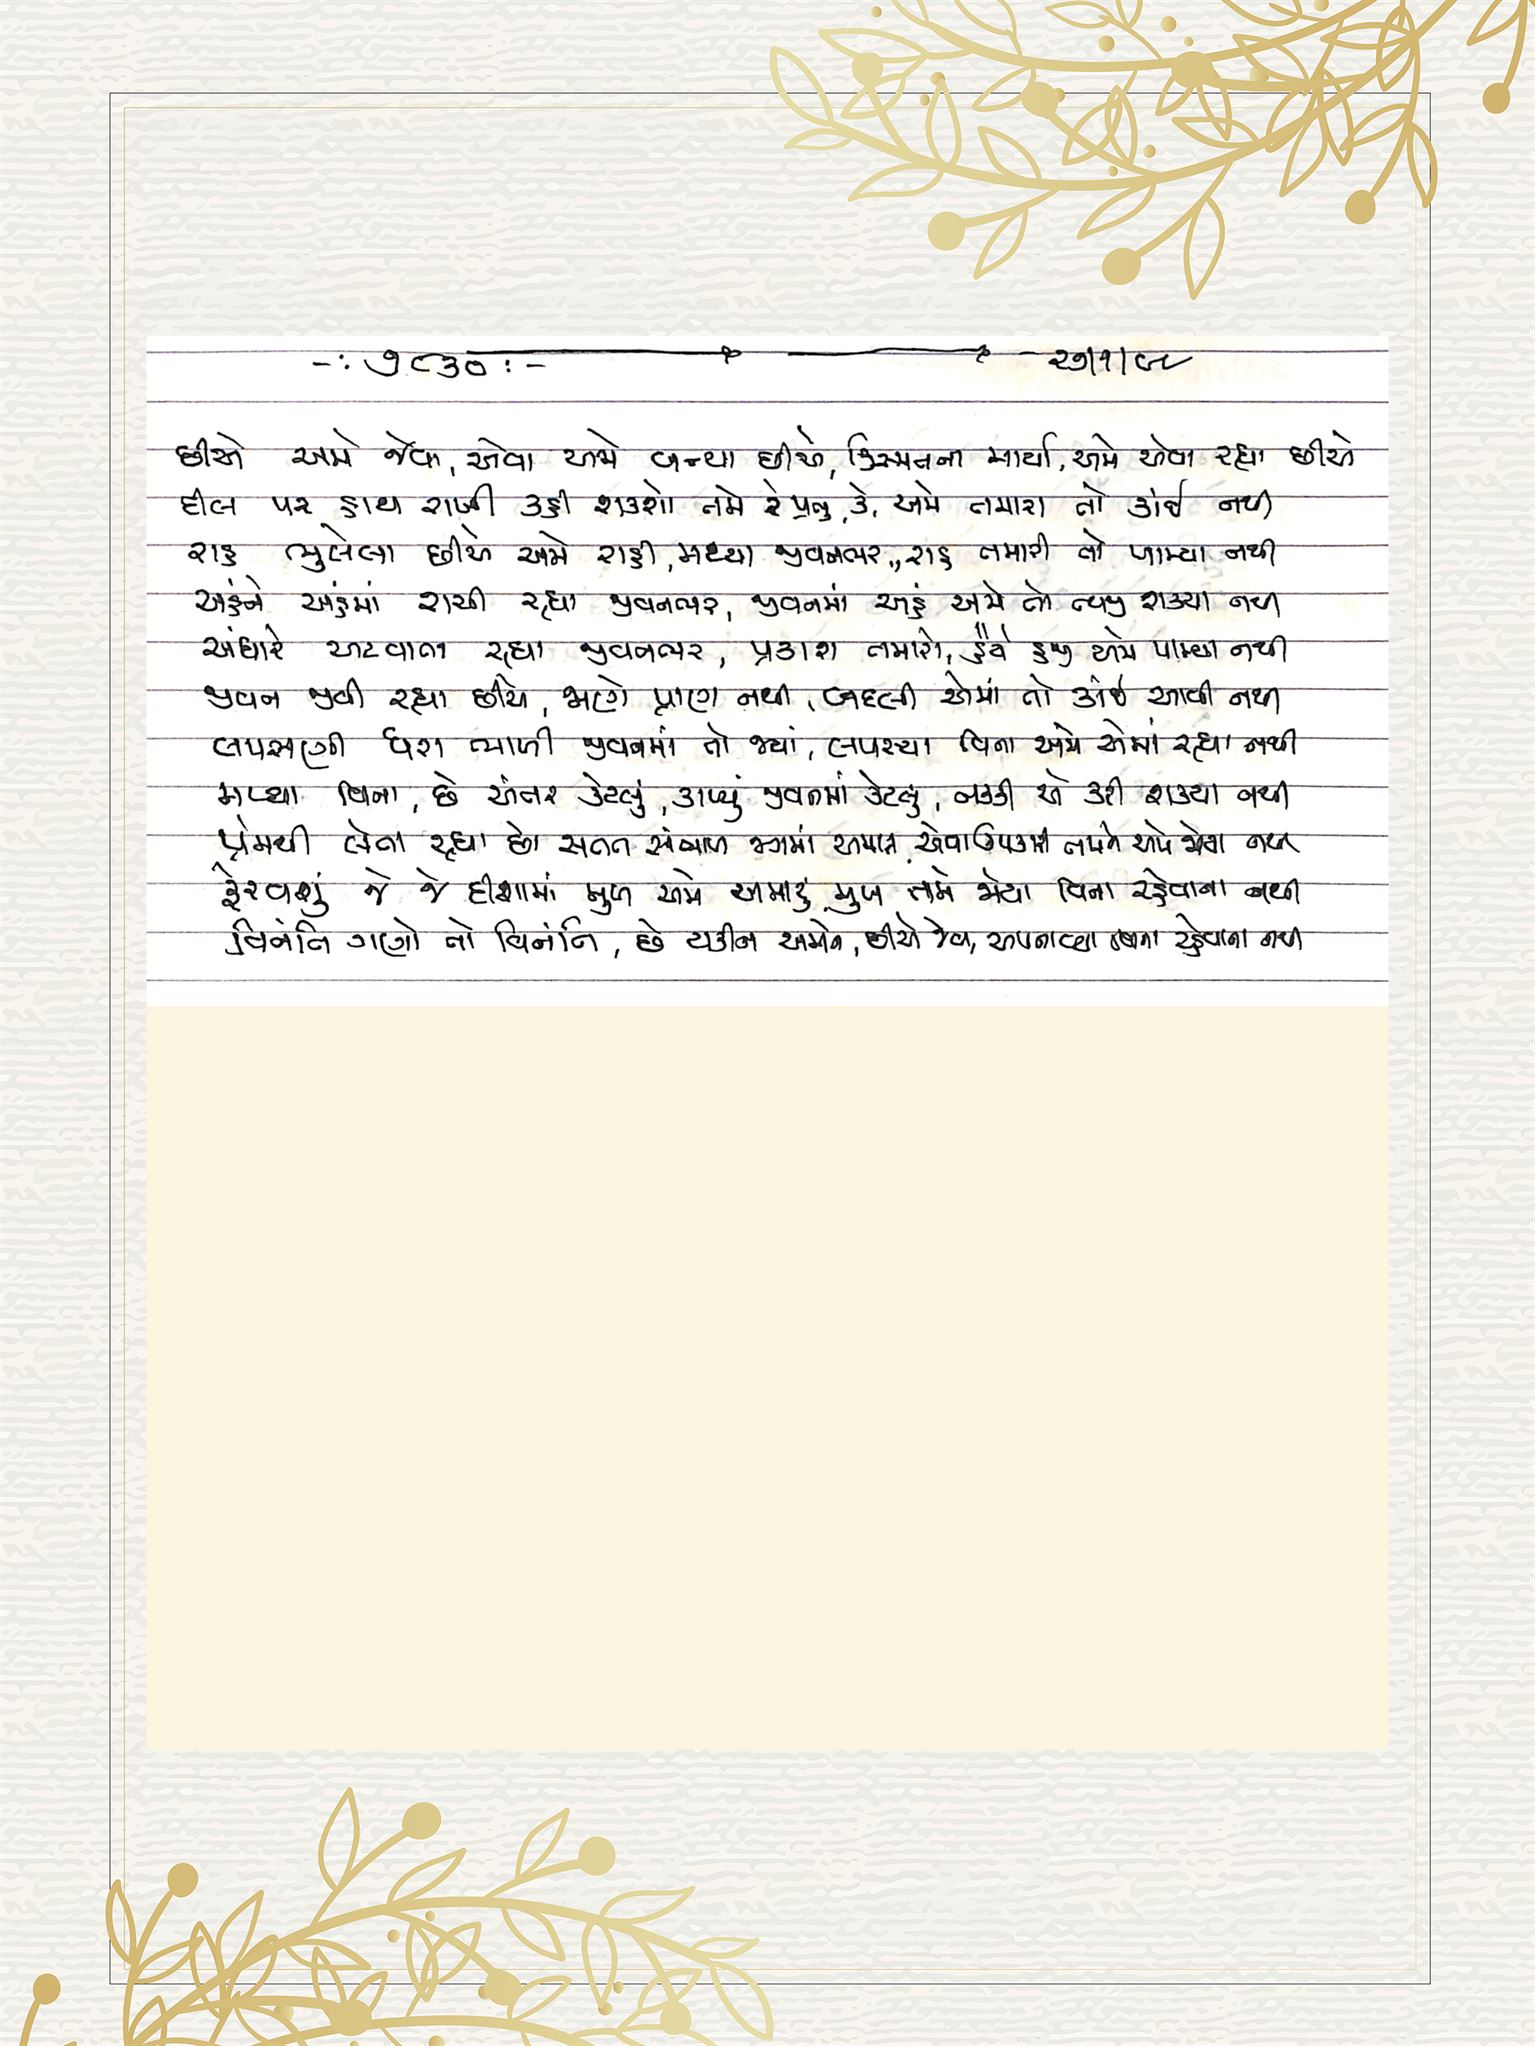 -: ૭૮૩૦ :- ૨૭|૧|૯૯
છીએ અમે જેવા, એવા અમે બન્યા છીએ, કિસ્મતના માર્યા, અમે એવા રહ્યા છીએ
દીલ પર હાથ રાખી કહી શકશો તમે રે પ્રભુ, કે, અમે તમારા તો કાંઈ નથી
રાહ ભુલેલા છીએ અમે રાહી, મથ્યા જીવનભર, રાહ તમારી તો પામ્યા નથી
અહંને અહંમાં રાચી રહ્યા જીવનભર, જીવનમાં અહં અમે તો ત્યજી શક્યા નથી
અંધારે અટવાતા રહ્યા જીવનભર, પ્રકાશ તમારો, હૈયે હજી અમે પામ્યા નથી
જીવન જીવી રહ્યા છીએ, જાણે પ્રાણ નથી, બદલી એમાં તો કાંઈ આવી નથી
લપસણી ધરા ભાળી જીવનમાં તો જ્યાં, લપસ્યા વિના અમે એમાં રહ્યા નથી
માપ્યા વિના, છે અંતર કેટલું, કાપ્યું જીવનમાં કેટલું, નક્કી એ કરી શક્યા નથી
પ્રેમથી લેતા રહ્યા છો સતત સંભાળ જગમાં અમારી, એવા ઉપકારી તમને અમે જોયા નથી
ફેરવશું જે જે દીશામાં મુખ અમે અમારું, મુખ તમે જોયા વિના રહેવાના નથી
વિનંતિ ગણો તો વિનંતિ, છે યકીન અમોને, છીએ જેવા, અપનાવ્યા વિના રહેવાના નથી